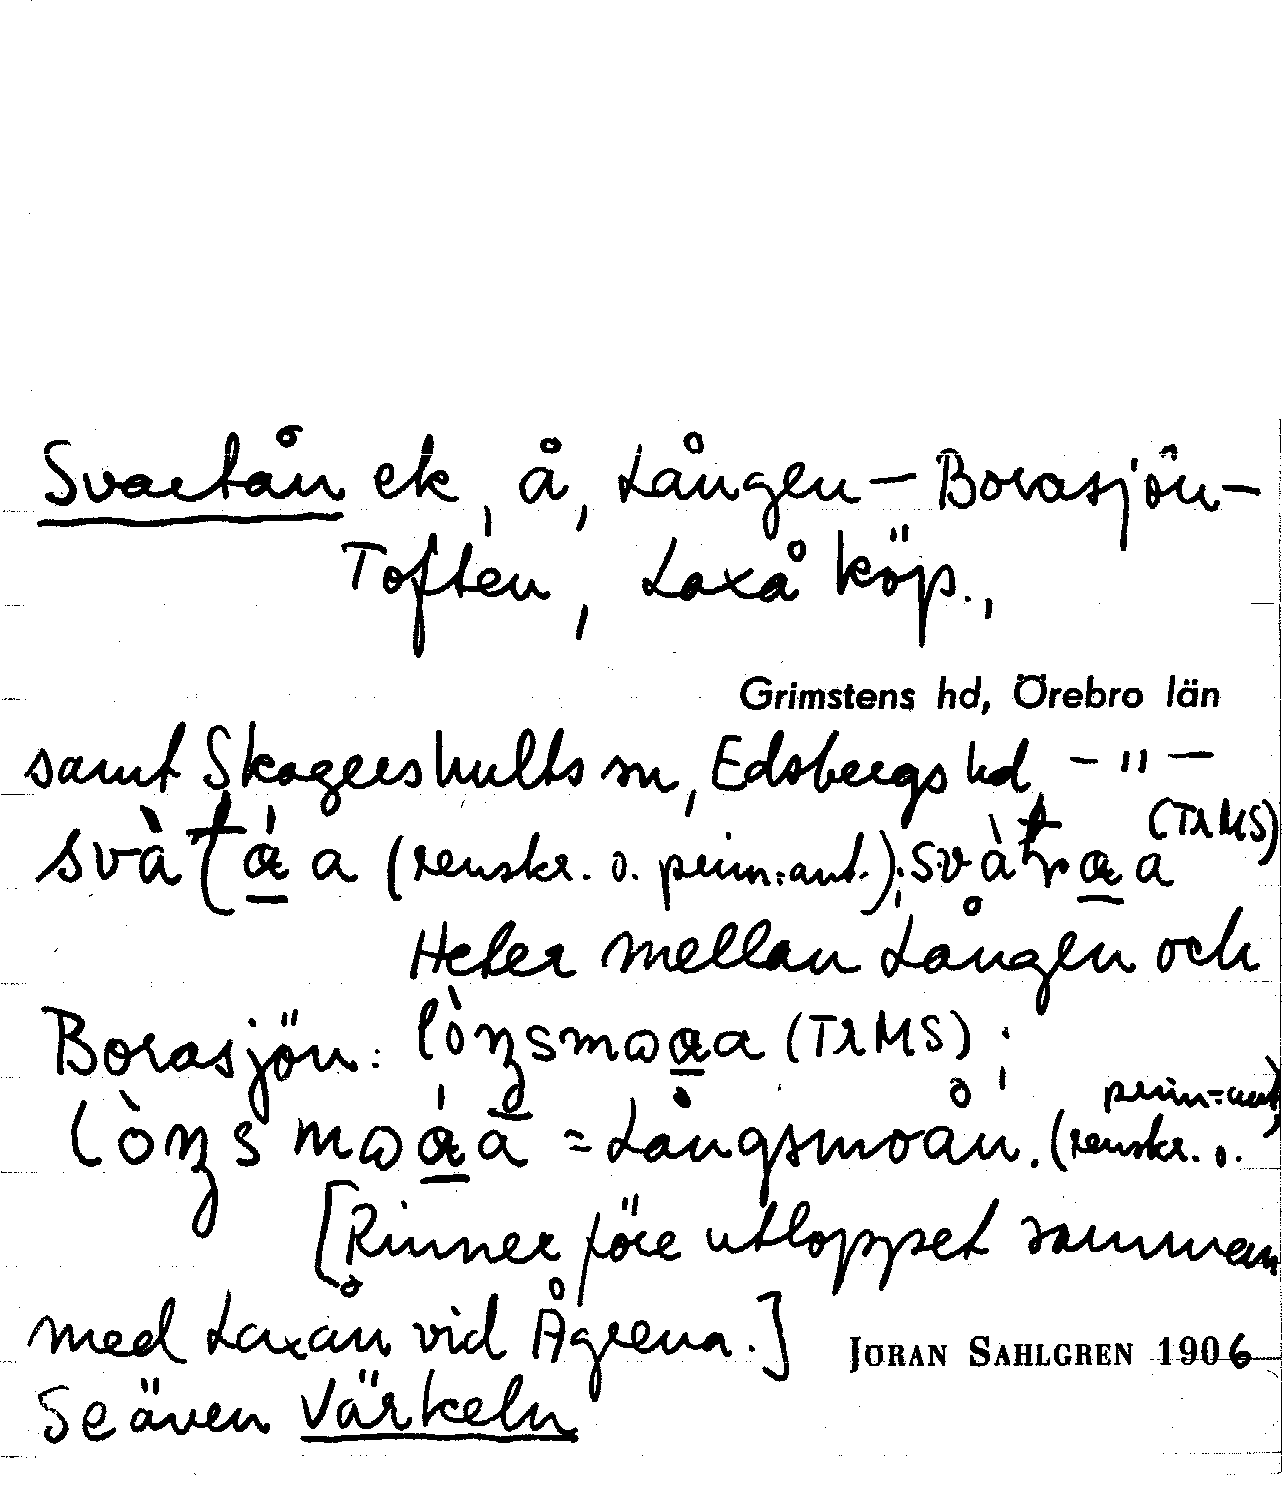 Svartån ek, å, Lången – Borasjön –
Toften, Laxå köp.,
Grimstens hd, Örebro län
samt Skagershults sn, Edsbergs hd – " –
(renskr. o. prim.-ant.); (TrMS)
Heter mellan Lången och
Borasjön: (TrMS);
= Långsmoån. (renskr. o. prim-ant)
[Rinner före utloppet samman
med Laxån vid Ågrena.]
JÖRAN SAHLGREN 1906
Se även Värkeln